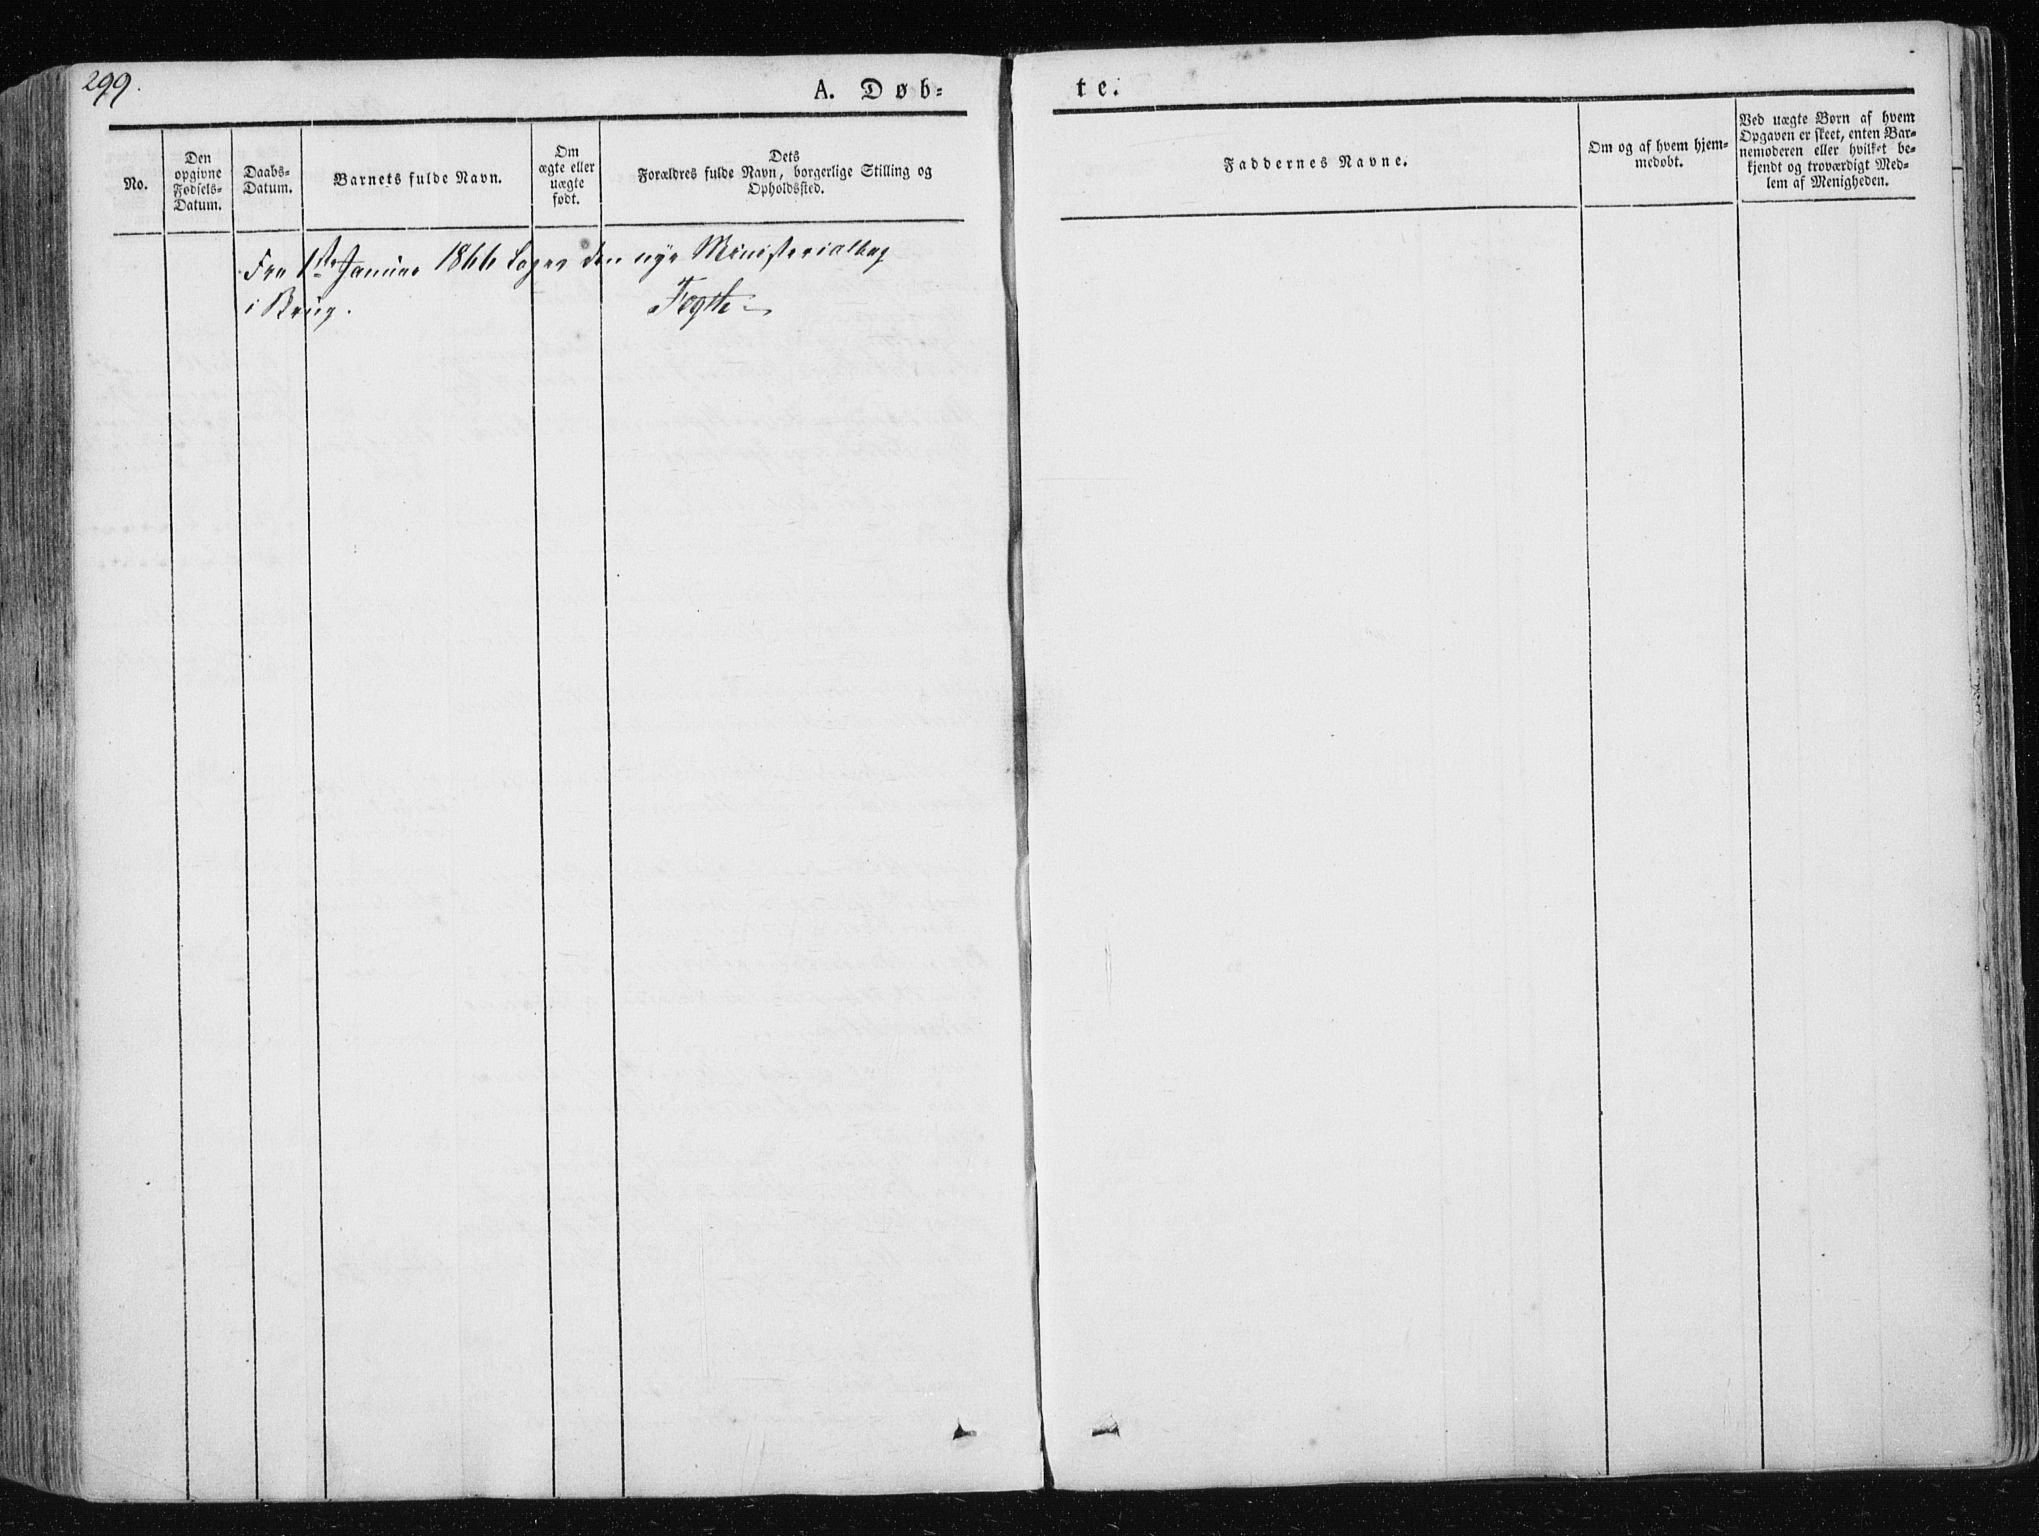 299.
A. Døb=
te.
No.
Den
opgivne
Fødsels-
Datum.
Daabs-
Datum.
Barnets fulde Navn.
Om
ægte eller
uægte
født.
Dets
Forældres fulde Navn, borgerlige Stilling og
Opholdssted.
Faddernes Navne.
Om og af hvem hjem-
medøbt.
Ved uægte Børn af hvem
Opgaven er skeet, enten Bar-
nemoderen eller hvilket be-
kjendt og troværdigt Med-
lem af Menigheden.
Fra 1ste Januar 1866 tages den nye Ministerialbog
i Brug.